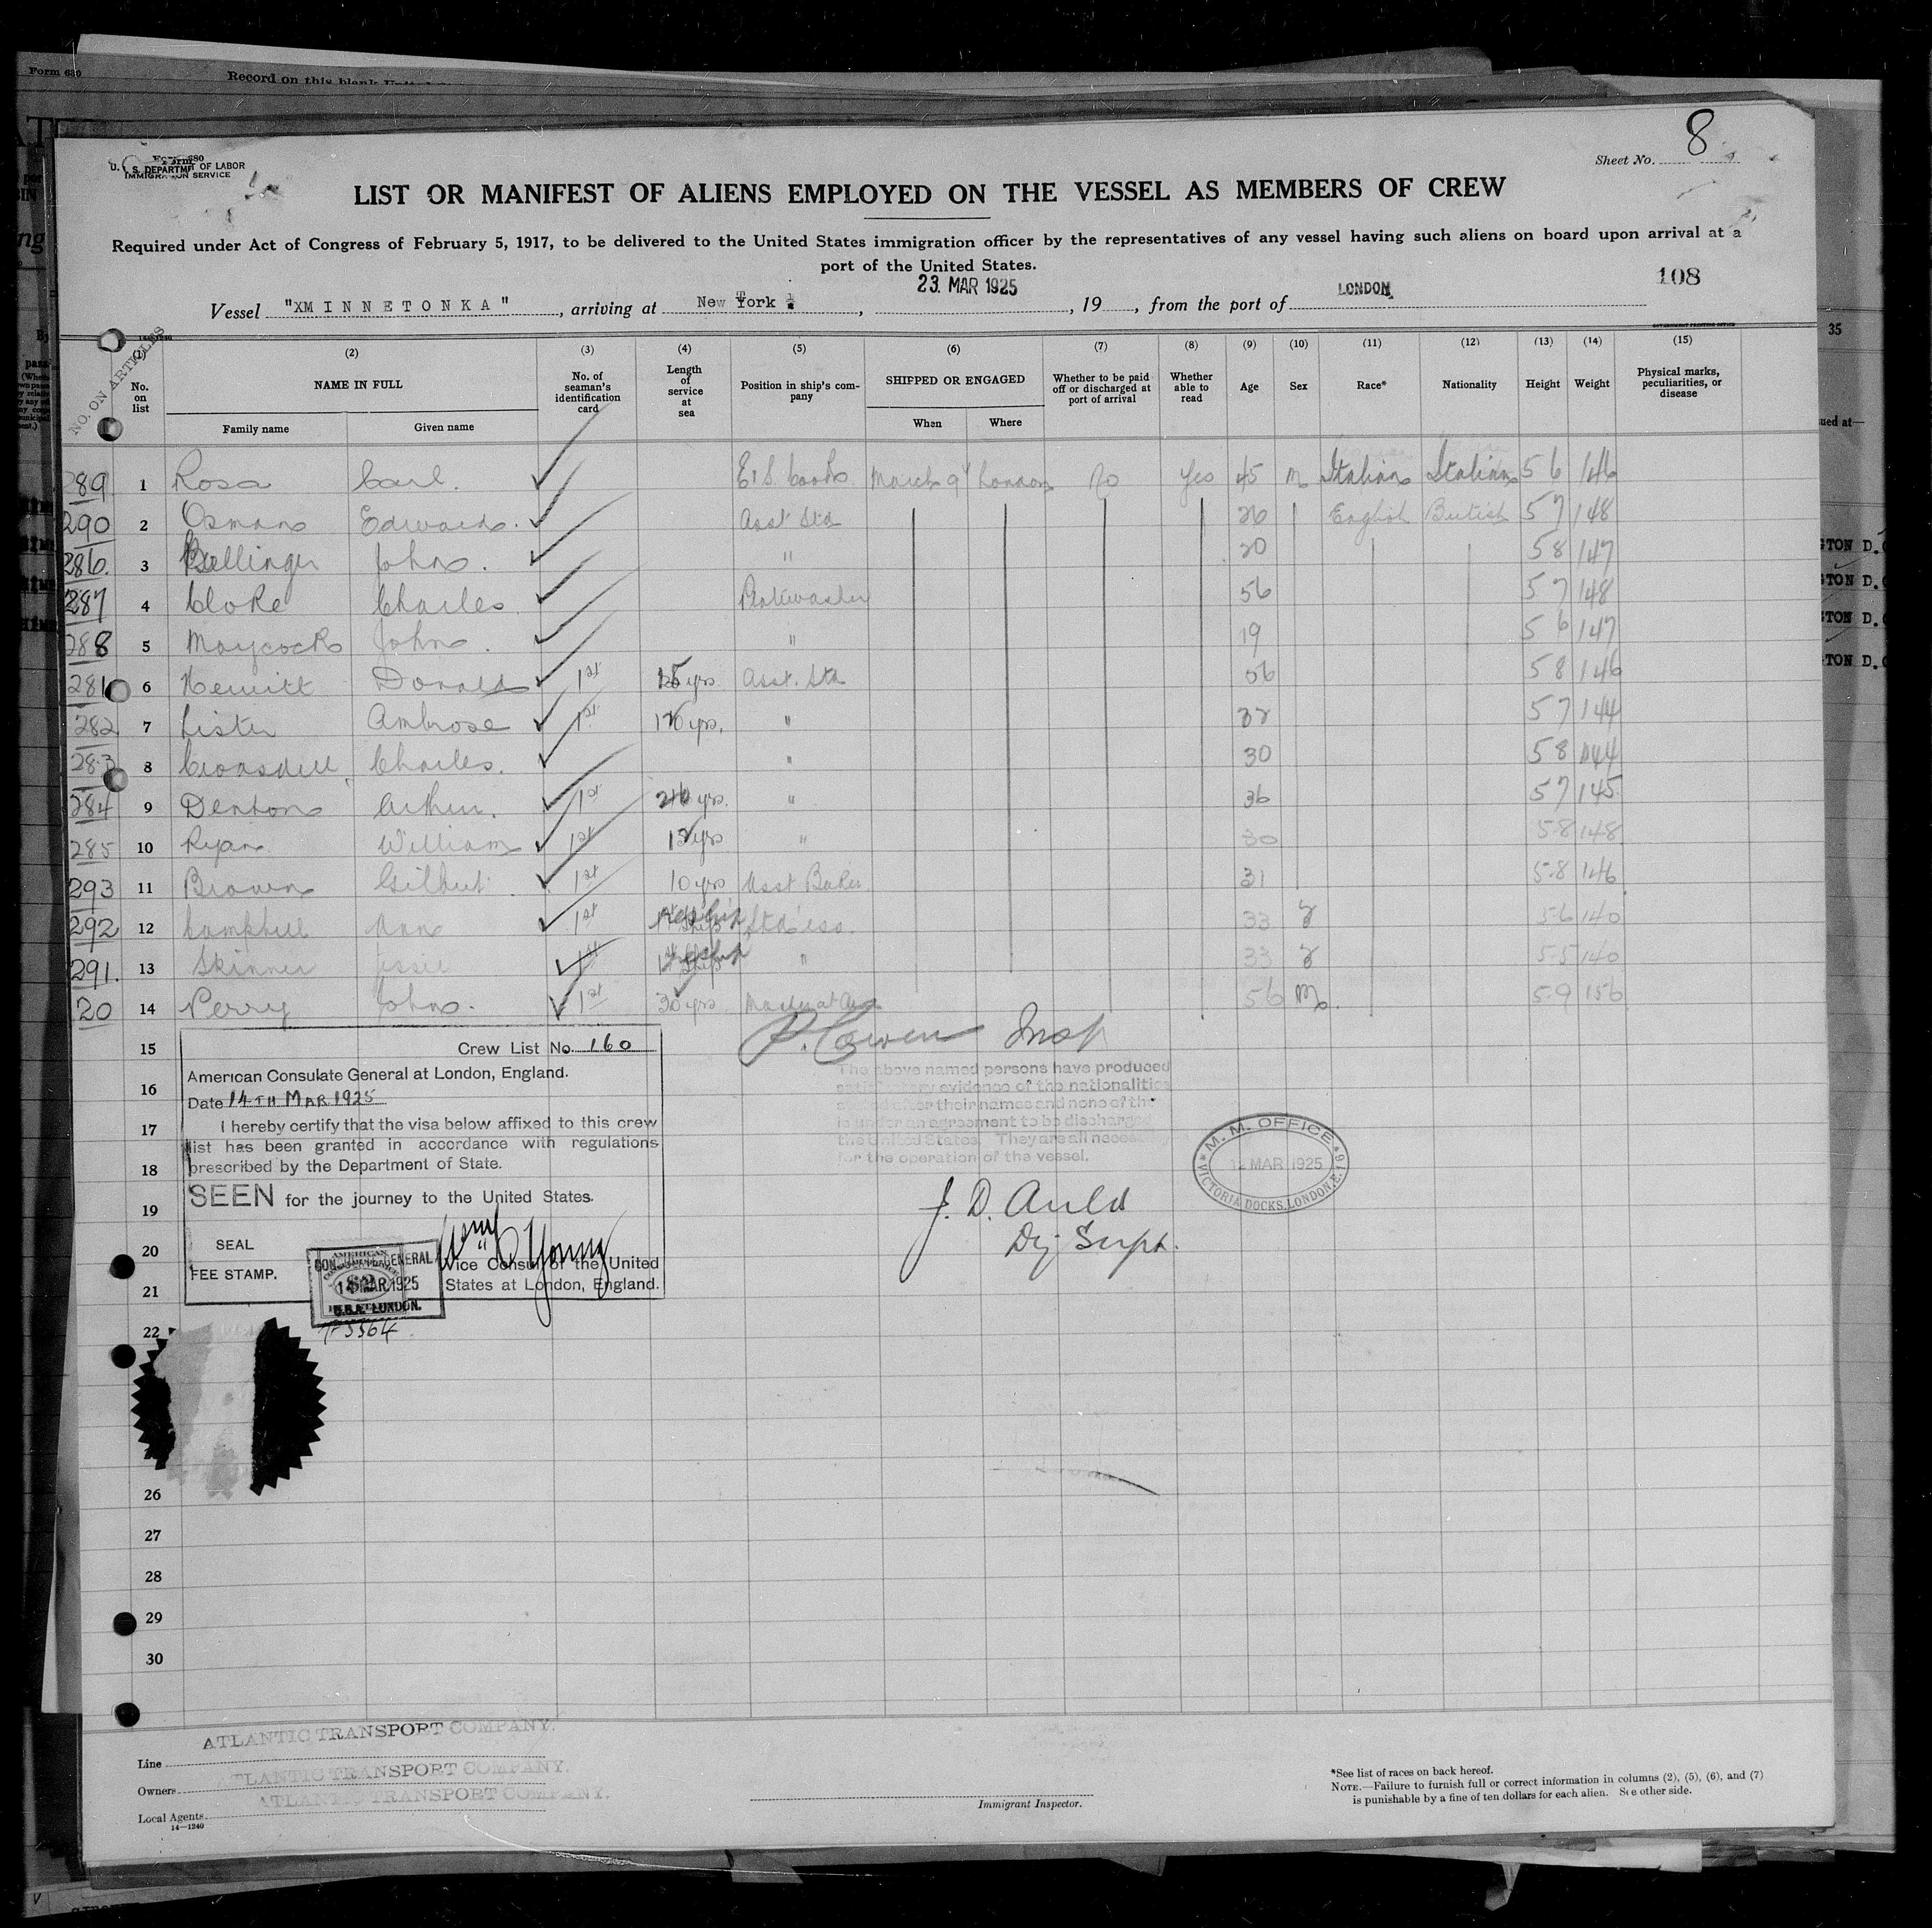 Form 630
Record on this blank
8
Sheet No.
Form 680
U. S. DEPARTMENT OF LABOR
IMMIGRATION SERVICE
LIST OR MANIFEST OF ALIENS EMPLOYED ON THE VESSEL AS MEMBERS OF CREW
Required under Act of Congress of February 5, 1917, to be delivered to the United States immigration officer by the representatives of any vessel having such aliens on board upon arrival at a
port of the United States.
108
Vessel "XMINNETONKA", arriving at New York, 23. MAR 1925, 19, from the port of LONDON
NO. ON ARTICLES
(1) (2) (3) (4) (5) (6) (7) (8) (9) (10) (11) (12) (13) (14) (15)
No. on list NAME IN FULL No. of seaman's identification card Length of service at sea Position in ship's company SHIPPED OR ENGAGED Whether to be paid off or discharged at port of arrival Whether able to read Age Sex Race* Nationality Height Weight Physical marks, peculiarities, or disease
Family name Given name When Where
289 1 Rosa Carl. March 9 London No Yes 45 m Italian Italian 5 6 146
290 2 Osman Edward. Asst Std 26 English British 5 7 148
286. 3 Bellinger John. " 20 5 8 147
287 4 Cloke Charles. Platewasher 56 5 7 148
288 5 Maycock John. " 19 5 6 147
281 6 Hewitt Donald 1st yrs Asst. Std 56 5 8 146
282 7 Lister Ambrose 1st yrs. " 5 7 144
283 8 Croasdell Charles. " 30 5 8 144
284 9 Denton Arthur. 1st yrs. " 36 5 7 145
285 10 Ryan William 1st yrs " 30 5-8 148
293 11 Brown Gilbert 1st 10 yrs Asst Baker 31 5-8 146
292 12 Campbell Ann 1st Std'ess. 33 5-6 140
291. 13 Skinner Jessie 1st " 33 5-5 140
20 14 Perry John. 1st 30 yrs Master at Arms 56 m. 5-9 156
15
P. Cowen Insp
Crew List No. 160
American Consulate General at London, England.
16
Date 14TH MAR 1925
I hereby certify that the visa below affixed to this crew
17
list has been granted in accordance with regulations
18
prescribed by the Department of State.
SEEN for the journey to the United States.
19
20
SEAL
FEE STAMP.
Vice Consul of the United
States at London, England.
21
AMERICAN
CONSULATE GENERAL
14 MAR 1925
U.S.A. LONDON.
The above named persons have produced
satisfactory evidence of the nationalities
stated after their names and none of the
is under an agreement to be discharged
the United States. They are all necessary
for the operation of the vessel.
M. M. OFFICE
12 MAR 1925
VICTORIA DOCKS, LONDON, E.16
J. D. Auld
Dy Supt.
22
26
27
28
29
30
Line ATLANTIC TRANSPORT COMPANY.
Owners ATLANTIC TRANSPORT COMPANY.
Local Agents ATLANTIC TRANSPORT COMPANY.
14—1240
Immigrant Inspector.
*See list of races on back hereof.
NOTE.—Failure to furnish full or correct information in columns (2), (5), (6), and (7)
is punishable by a fine of ten dollars for each alien. See other side.